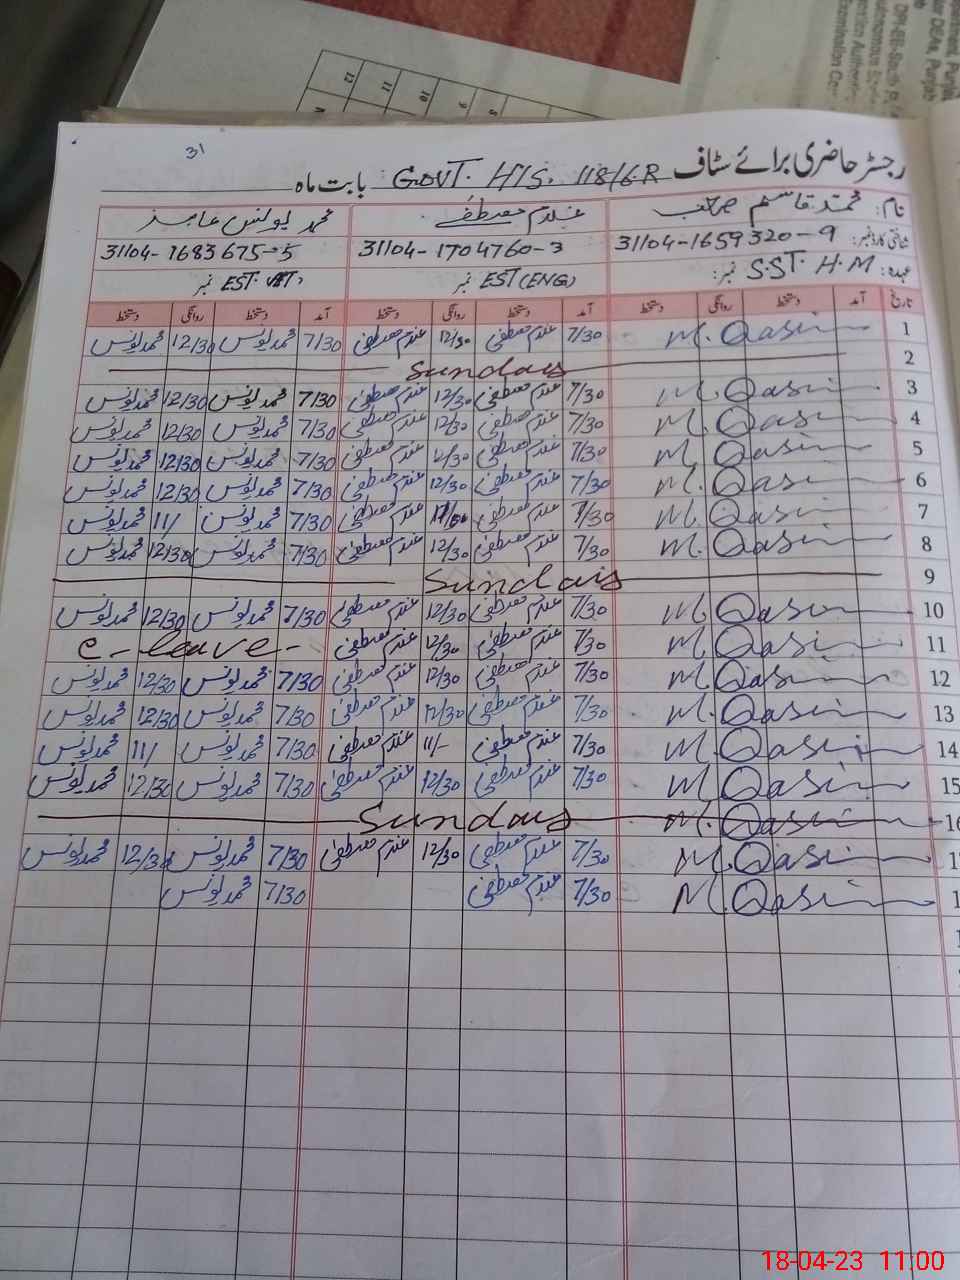 DPI-EE-Bach
Examination Cen
12 11 10 9
31
رجسٹر حاضری برائے سٹاف GOVT. H/S. 118/6.R بابت ماہ
نام: محمد قاسم صاحب غلام مصطفےٰ محمد یونس عابز
شناختی کارڈ نمبر: 31104-1659320-9 31104-1704760-3 31104-1683675-5
عہدہ: S.S.T. H.M نمبر: EST (ENG) نمبر EST. نمبر
تاریخ آمد دستخط روانگی دستخط آمد دستخط روانگی دستخط آمد دستخط روانگی دستخط
1 M. Qasim 7/30 غلام مصطفی 12/30 غلام مصطفی 7/30 محمد یونس 12/30 محمد یونس
2 Sunday
3 M. Qasim 7/30 غلام مصطفی 12/30 غلام مصطفی 7/30 محمد یونس 12/30 محمد یونس
4 M. Qasim 7/30 غلام مصطفی 12/30 غلام مصطفی 7/30 محمد یونس 12/30 محمد یونس
5 M. Qasim 7/30 غلام مصطفی 12/30 غلام مصطفی 7/30 محمد یونس 12/30 محمد یونس
6 M. Qasim 7/30 غلام مصطفی 12/30 غلام مصطفی 7/30 محمد یونس 12/30 محمد یونس
7 M. Qasim 7/30 غلام مصطفی غلام مصطفی 7/30 محمد یونس 11/ محمد یونس
8 M. Qasim 7/30 غلام مصطفی 12/30 غلام مصطفی 7/30 محمد یونس 12/30 محمد یونس
9 Sunday
10 M. Qasim 7/30 غلام مصطفی 12/30 غلام مصطفی 7/30 محمد یونس 12/30 محمد یونس
11 M. Qasim 7/30 غلام مصطفی 12/30 غلام مصطفی c-leave-
12 M. Qasim 7/30 غلام مصطفی 12/30 غلام مصطفی 7/30 محمد یونس 12/30 محمد یونس
13 M. Qasim 7/30 غلام مصطفی 12/30 غلام مصطفی 7/30 محمد یونس 12/30 محمد یونس
14 M. Qasim 7/30 غلام مصطفی 11/- غلام مصطفی 7/30 محمد یونس 11/ محمد یونس
15 M. Qasim 7/30 غلام مصطفی 12/30 غلام مصطفی 7/30 محمد یونس 12/30 محمد یونس
16 M. Qasim Sunday
1 M. Qasim 7/30 غلام مصطفی 12/30 غلام مصطفی 7/30 محمد یونس 12/30 محمد یونس
1 M. Qasim 7/30 غلام مصطفی 7/30 محمد یونس
18-04-23 11:00